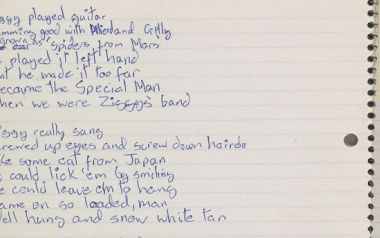 ggy played guitar
mming good with and Gilly
Spiders from Mars
played it left hand
ut he made it too far
ecame the Special Man
hen we were Ziggy's band
iggy really sang
rewed up eyes and screw down hairdo
ke some cat from Japan
could lick 'em by smiling
e could leave em to hang
ame on so loaded, man
ell hung and snow white tan